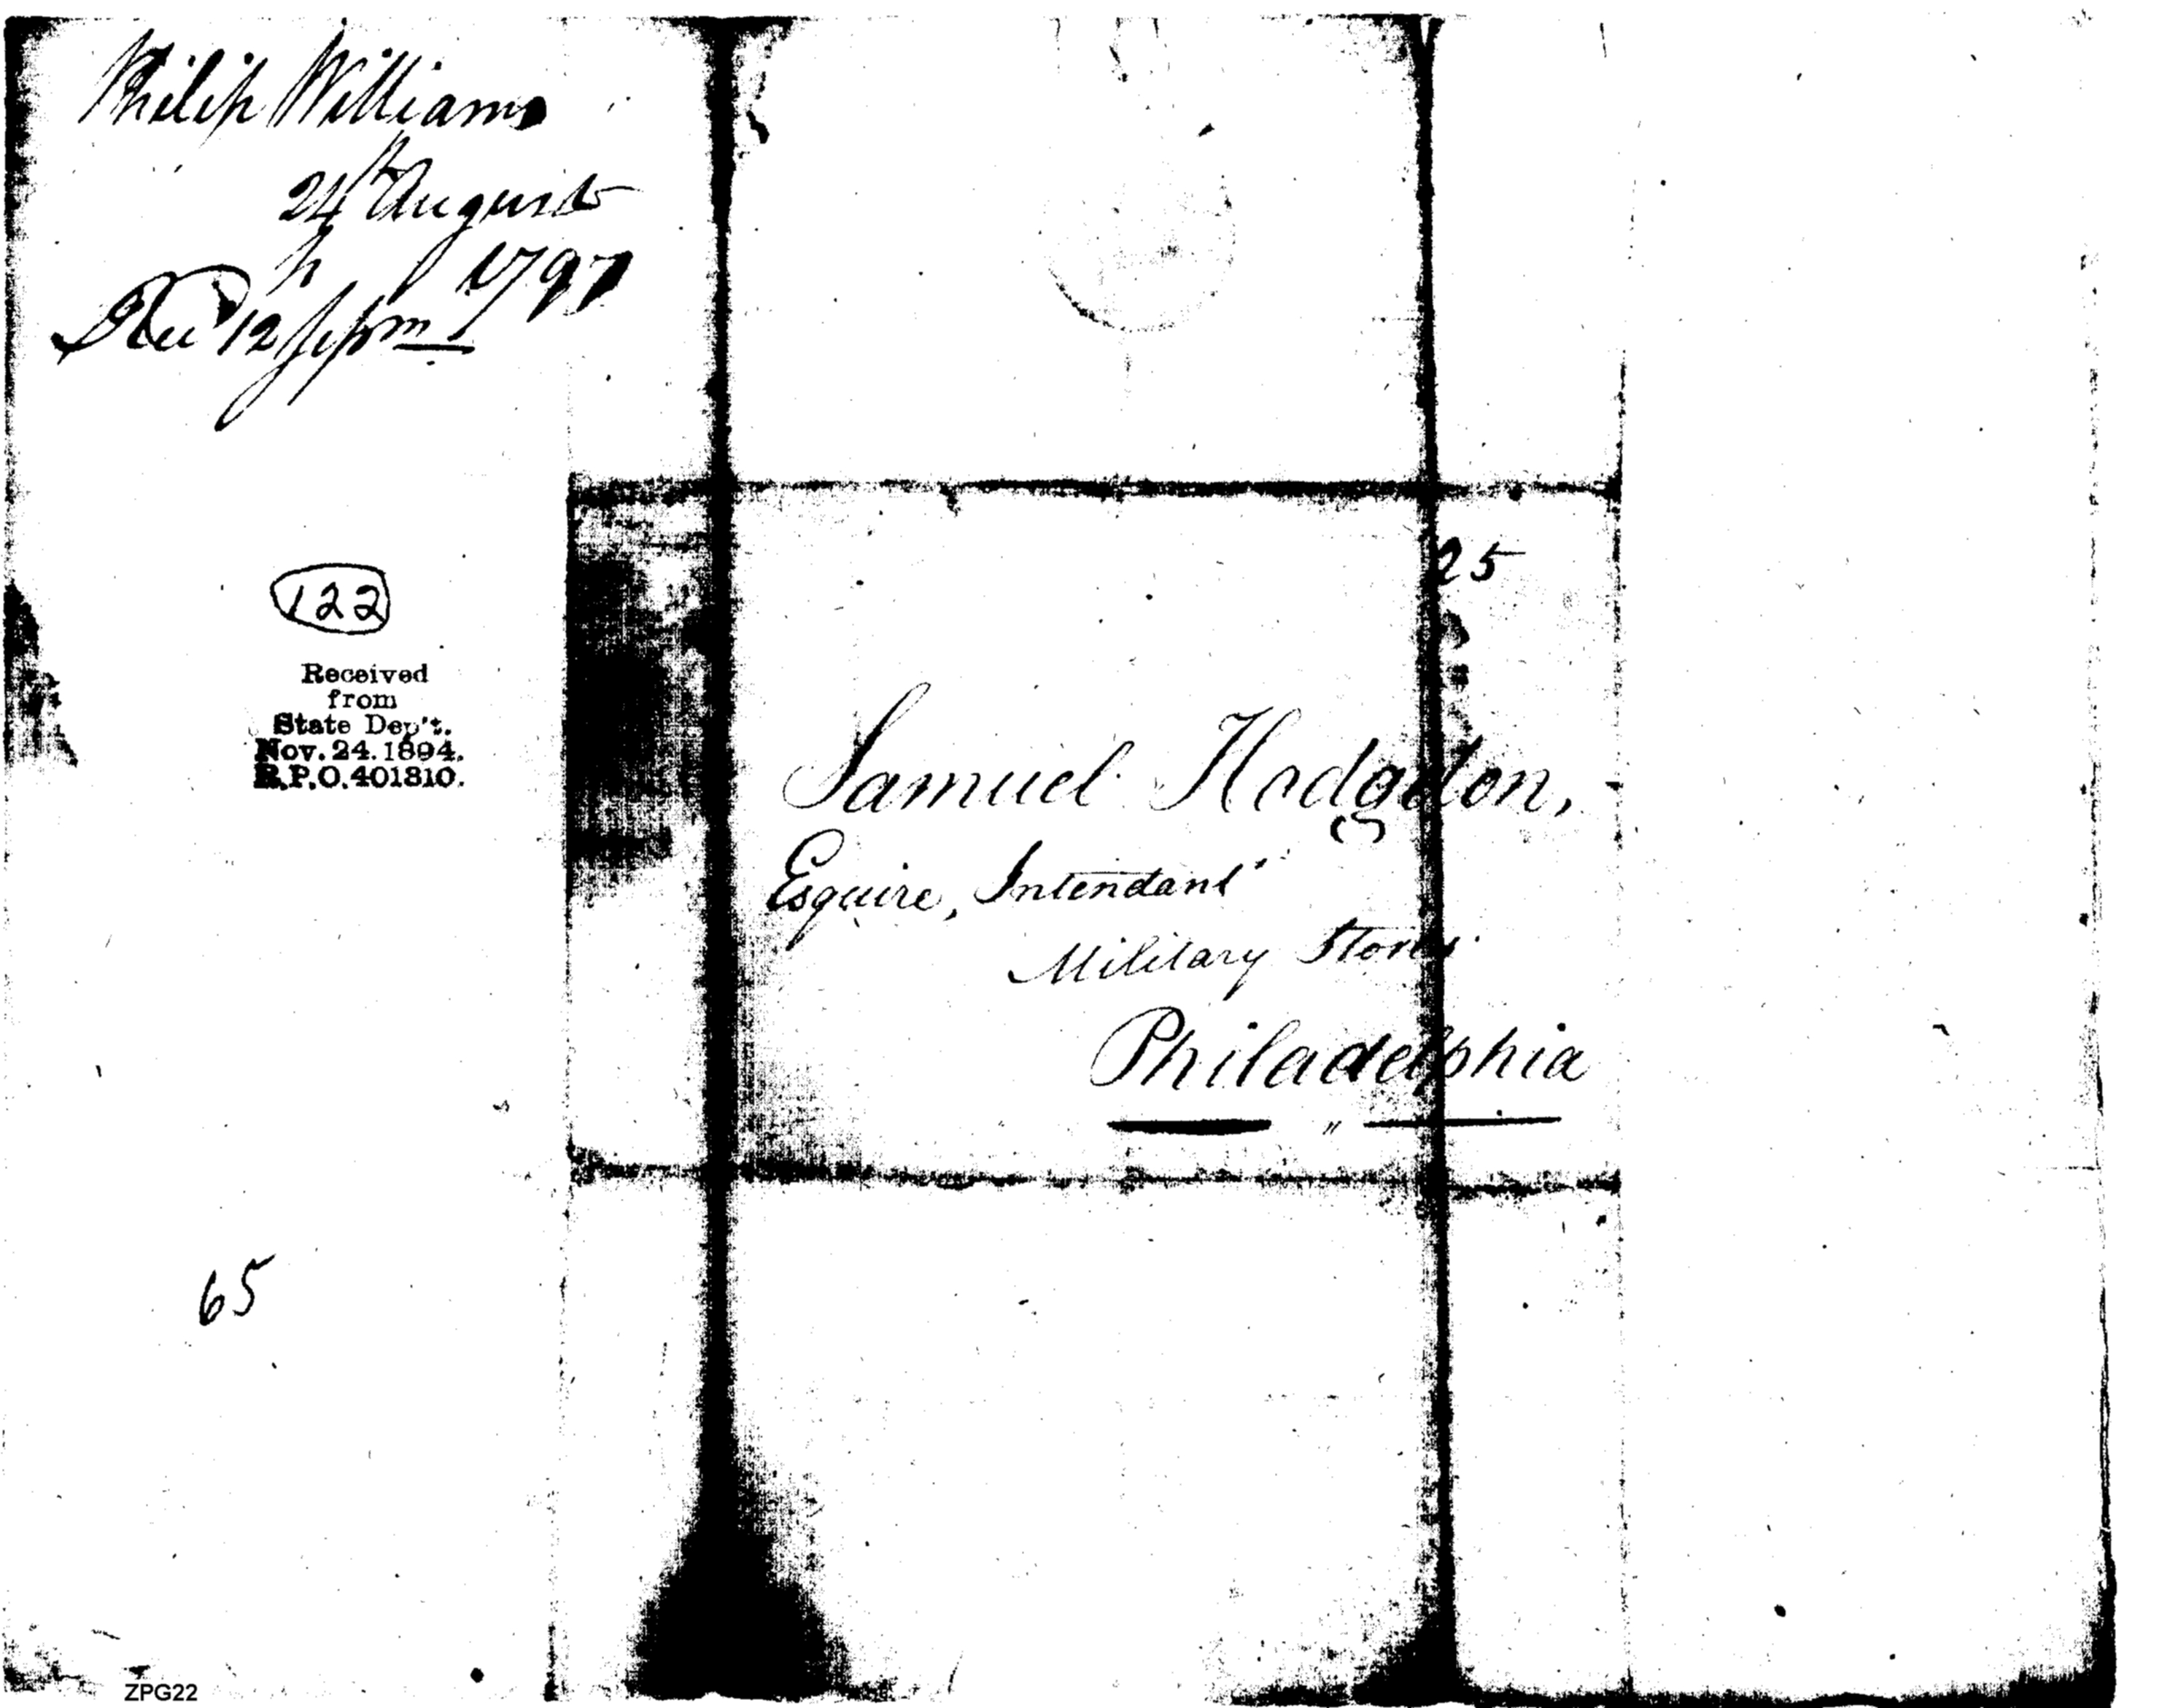 Philip Williams
24th August
1797
Recd 12 Septem
122
Received
from
State Dep't.
Nov. 24. 1894.
R.P.O. 401310.
65
25
Samuel Hodgdon,
Esquire, Intendant
Military Stores
Philadelphia
ZPG22